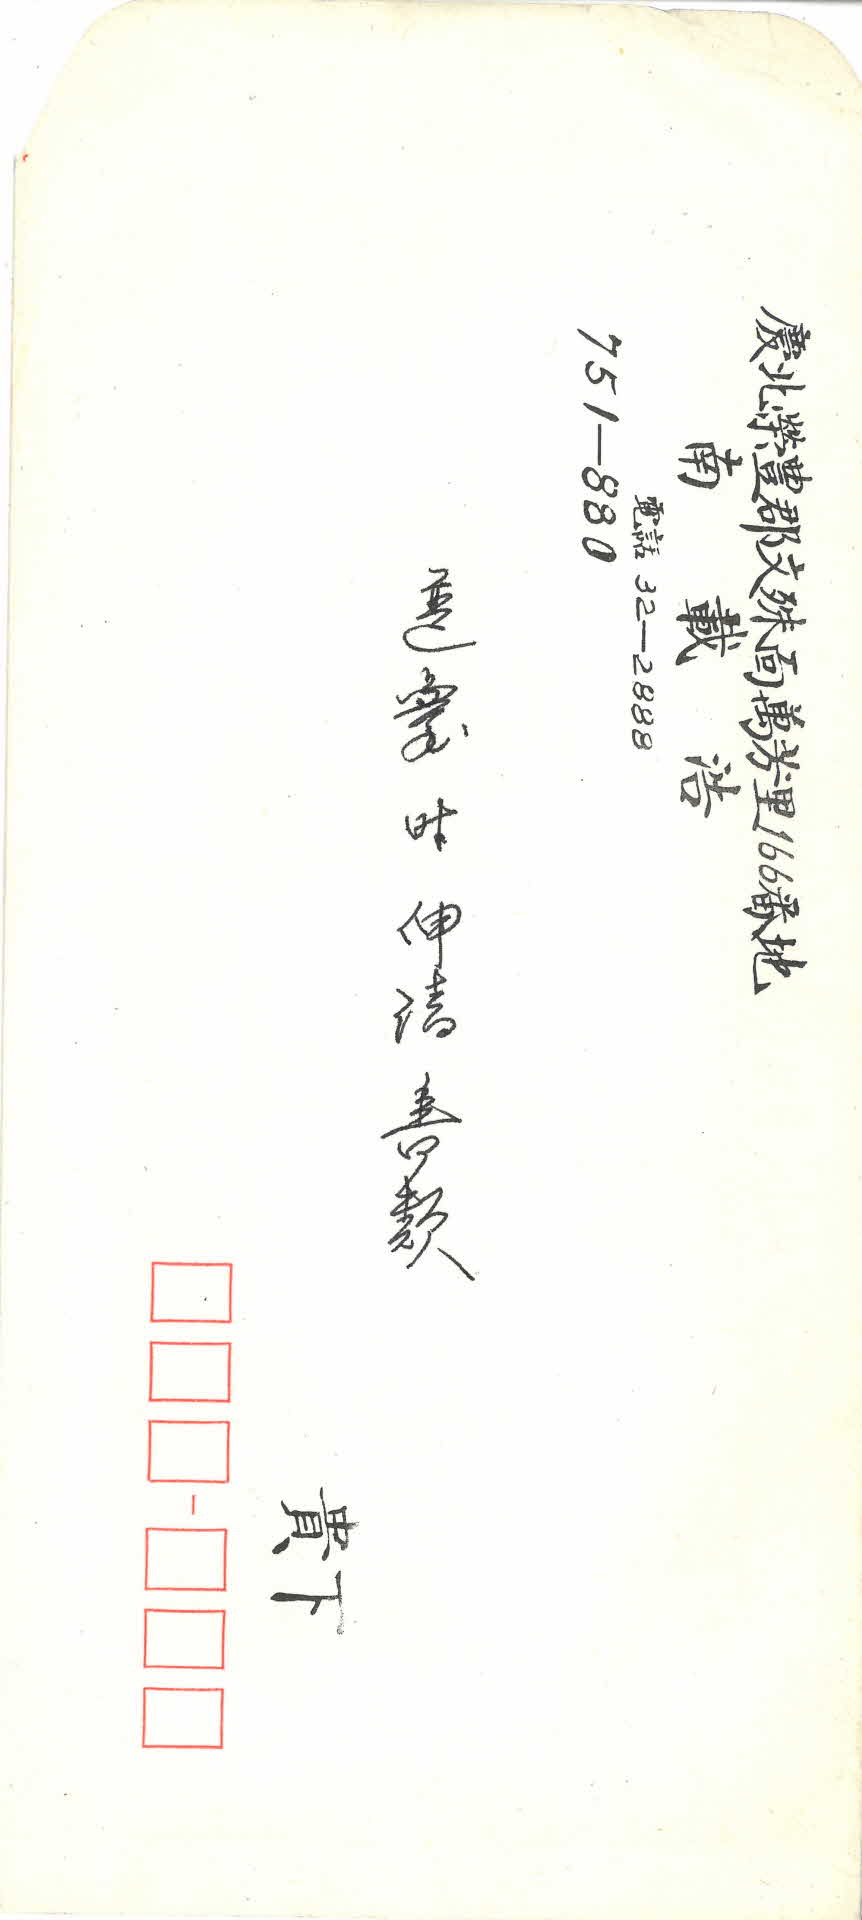 慶北榮豊郡文殊面萬芳里166番地
南 載 浩
電話 32-2888
751-880
伸請 書類
貴下